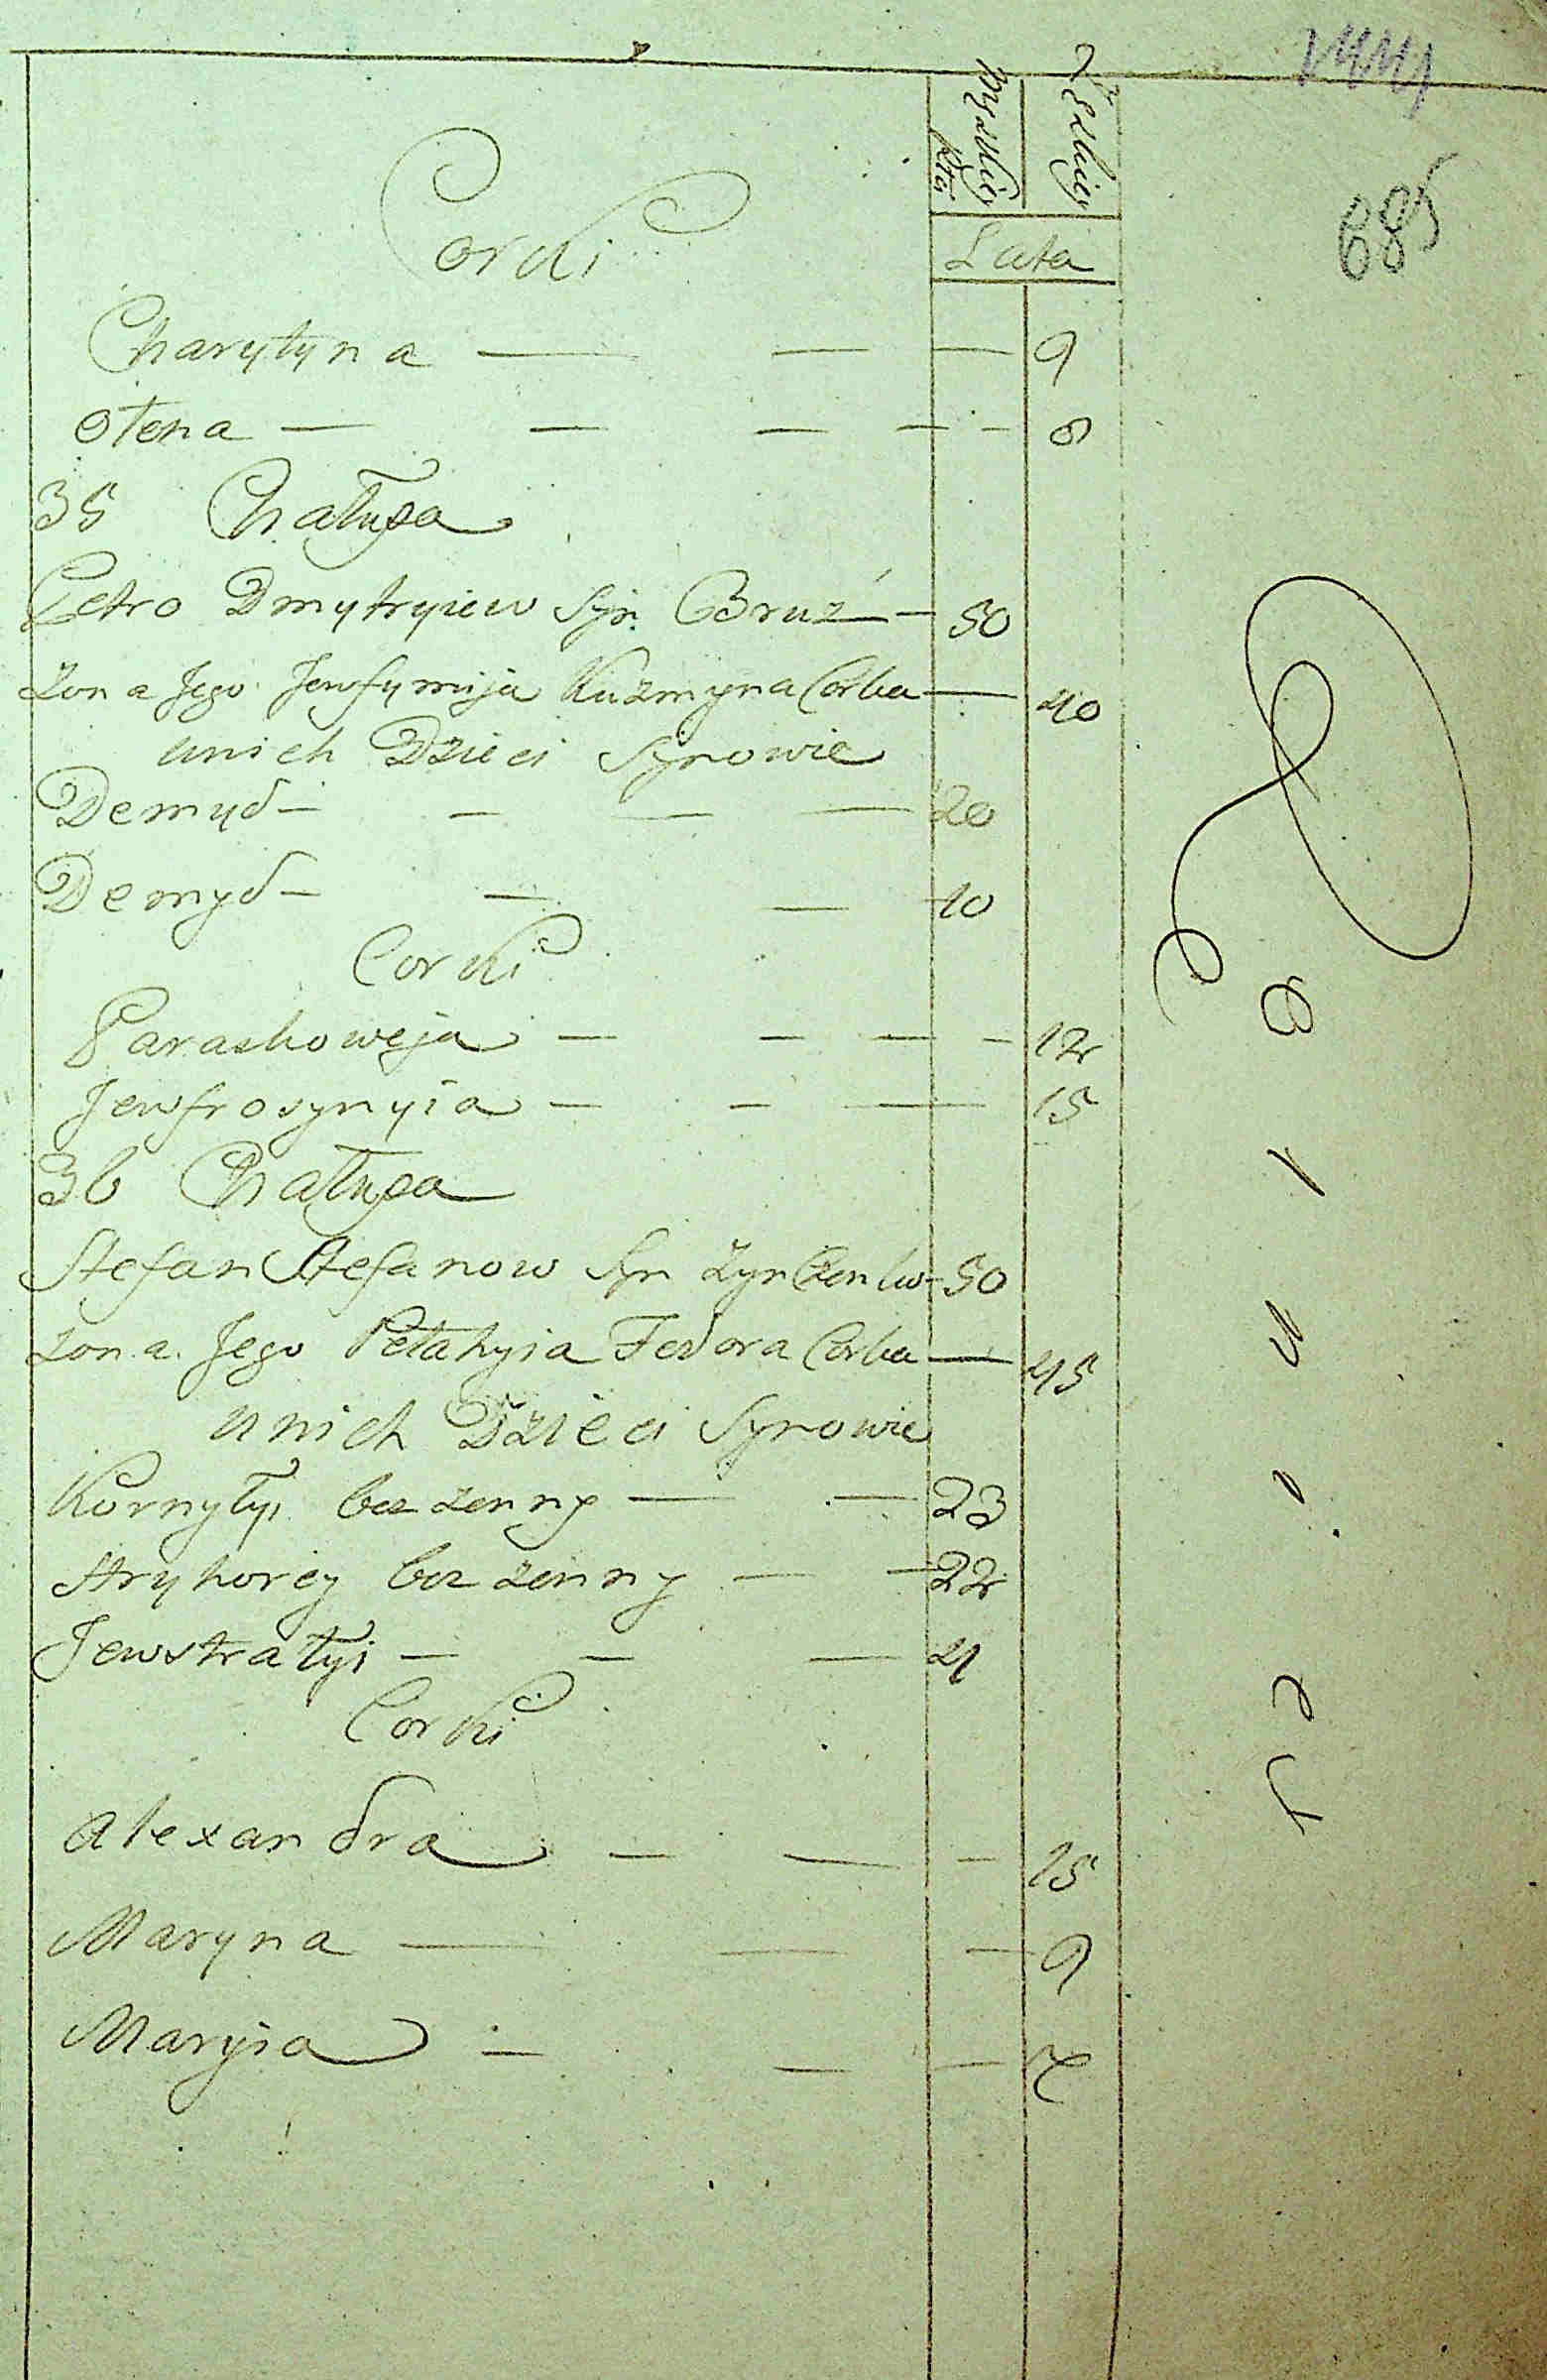 685
Męzkiey Płci
Żeńskiey
Lata
Corki
Charytyna — — — 9
Ołena — — — — — 8
35 Chałupa
Petro Dmytryiew Syn Bruź — 50
Żona Jego Jewfymija Kuzmyna Corka — 40
u nich Dzieci Synowie
Demyd — — — — 20
Demyd — — — 10
Corki
Paraskoweja — — — — 12
Jewfrosynyia — — — 15
36 Chałupa
Stefan Stefanow Syn — 50
Żona Jego Pelahyia Fedora Corka — 45
u nich Dzieci Synowie
Kornyłyi bezżenny — — 23
Hryhorey bezżenny — — 22
Jewstratyi — — — 21
Corki
Alexandra — — — 15
Maryna — — — 9
Maryia — — — 7